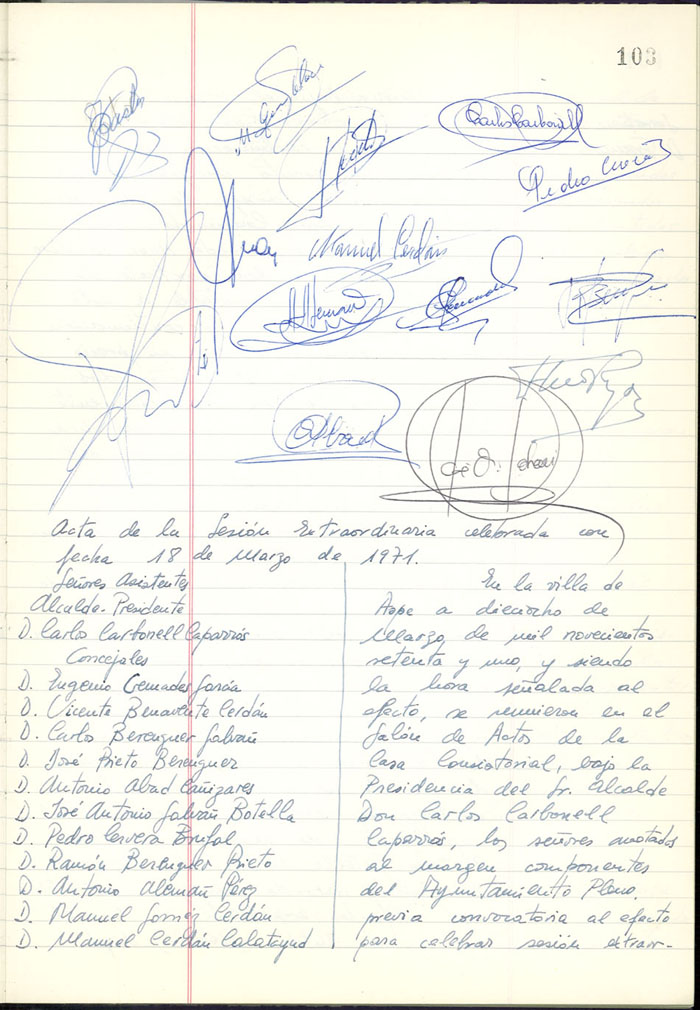 103
Carlos Carbonell
Pedro
Manuel Cerdán
A Aleman
Abad
Acta de la Sesión Extraordinaria celebrada con
fecha 18 de Marzo de 1971.
Señores Asistentes
Alcalde-Presidente
D. Carlos Carbonell Caparrós
Concejales
D. Eugenio Cremades García
D. Vicente Benavente Cerdán
D. Carlos Berenguer Galvañ
D. José Prieto Berenguer
D. Antonio Abad Cañizares
D. José Antonio Galván Botella
D. Pedro Cervera Brufal
D. Ramón Berenguer Prieto
D. Antonio Alemañ Pérez
D. Manuel Gomez Cerdán
D. Manuel Cerdán Calatayud
En la villa de
Aspe a dieciocho de
Marzo, de mil novecientos
setenta y uno, y siendo
la hora señalada al
efecto, se reunieron en el
Salón de Actos de la
Casa Consistorial, bajo la
Presidencia del Sr. Alcalde
Don Carlos Carbonell
Caparrós, los señores anotados
al margen componentes
del Ayuntamiento Pleno,
previa convocatoria al efecto
para celebrar sesión extraor-